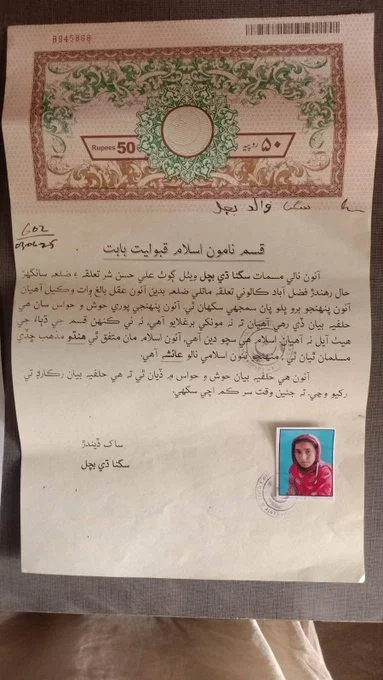 8945868
Rupees 50
۵۰ روپیہ
سکنا والد بچل
602
03/06/25
قسم نامون اسلام قبوليت بابت
آئون نالي مسمات سکنا ڌي بچل ويٺل ڳوٺ علي حسن شر تعلقه ۽ ضلعو سانگهڙ
حال رهندڙ فضل آباد ڪالوني تعلقه ماتلي ضلعو بدين آئون عقل بالغ وات وڪيل آهيان
آئون پنهنجو برو ڀلو پاڻ سمجهي سگهان ٿي آئون پنهنجي پوري هوش و حواس سان هي
حلفيه بيان ڏئي رهي آهيان ته نه مونکي برغلايو آهي نه ئي ڪنهن قسم جي دٻاءُ جي
هيٺ آيل نه آهيان اسلام هي سچو دين آهي، آئون اسلام مان متفق ٿي هندو مذهب ڇڏي
مسلمان ٿيان ٿي، منهنجو نئون اسلامي نالو عائشه آهي.
آئون هي حلفيه بيان هوش و حواس ۾ ڏيان ٿي ته هي حلفيه بيان رڪارڊ تي
رکيو وڃي ته جيئن وقت سر ڪم اچي سگهي.
ساک ڏيندڙ
سکنا ڌي بچل